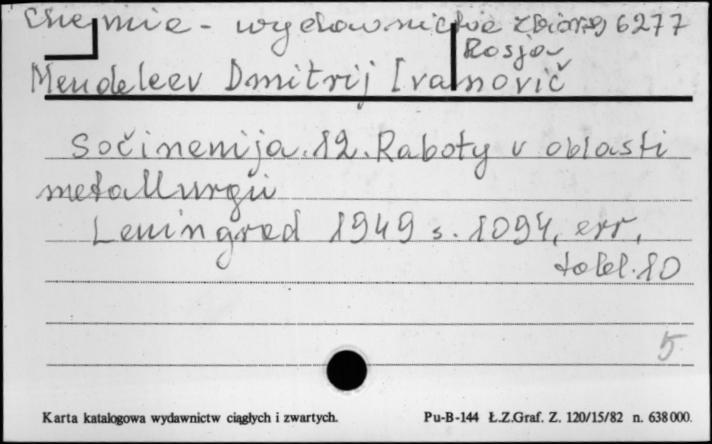 Chemia - wydawnictwa zbiorą 6277
Rosja
Mendeleev Dmitrij Ivanovič
Sočinenija. 12. Raboty v oblasti
metallurgii
Leningrad 1949 s. 1094, err,
tabl. 10
5
Karta katalogowa wydawnictw ciągłych i zwartych.
Pu-B-144 Ł.Z.Graf. Z. 120/15/82 n. 638000.